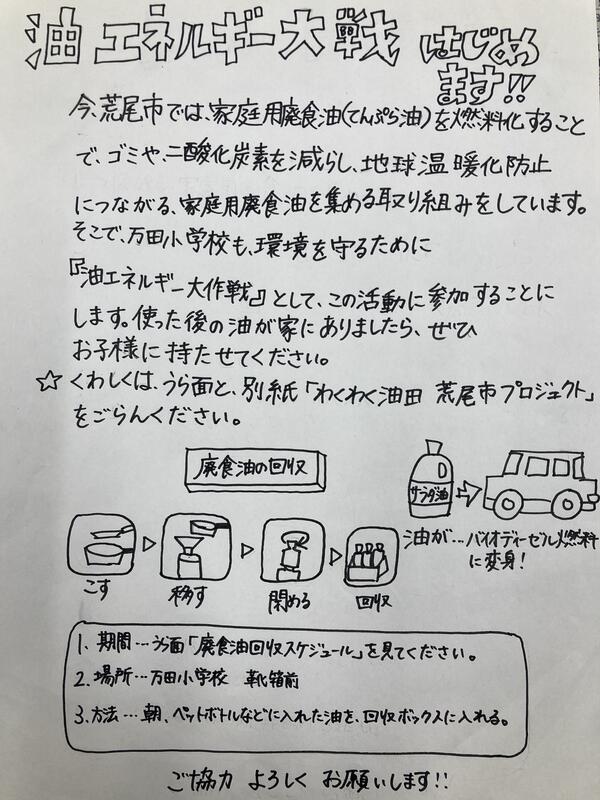 油エネルギー大戦 はじめ
ます!!
今、荒尾市では、家庭用廃食油(てんぷら油)を燃料化すること
で、ゴミや、二酸化炭素を減らし、地球温暖化防止
につながる、家庭用廃食油を集める取り組みをしています。
そこで、万田小学校も、環境を守るために
『油エネルギー大作戦』として、この活動に参加することに
します。使った後の油が家にありましたら、ぜひ
お子様に持たせてください。
☆ くわしくは、うら面と、別紙「わくわく油田 荒尾市プロジェクト」
をごらんください。
廃食油の回収
サラダ油
油が…バイオディーゼル燃料
に変身!
こす
移す
閉める
回収
1、期間…うら面「廃食油回収スケジュール」を見てください。
2、場所…万田小学校 靴箱前
3、方法…朝、ペットボトルなどに入れた油を、回収ボックスに入れる。
ご協力 よろしく お願いします!!